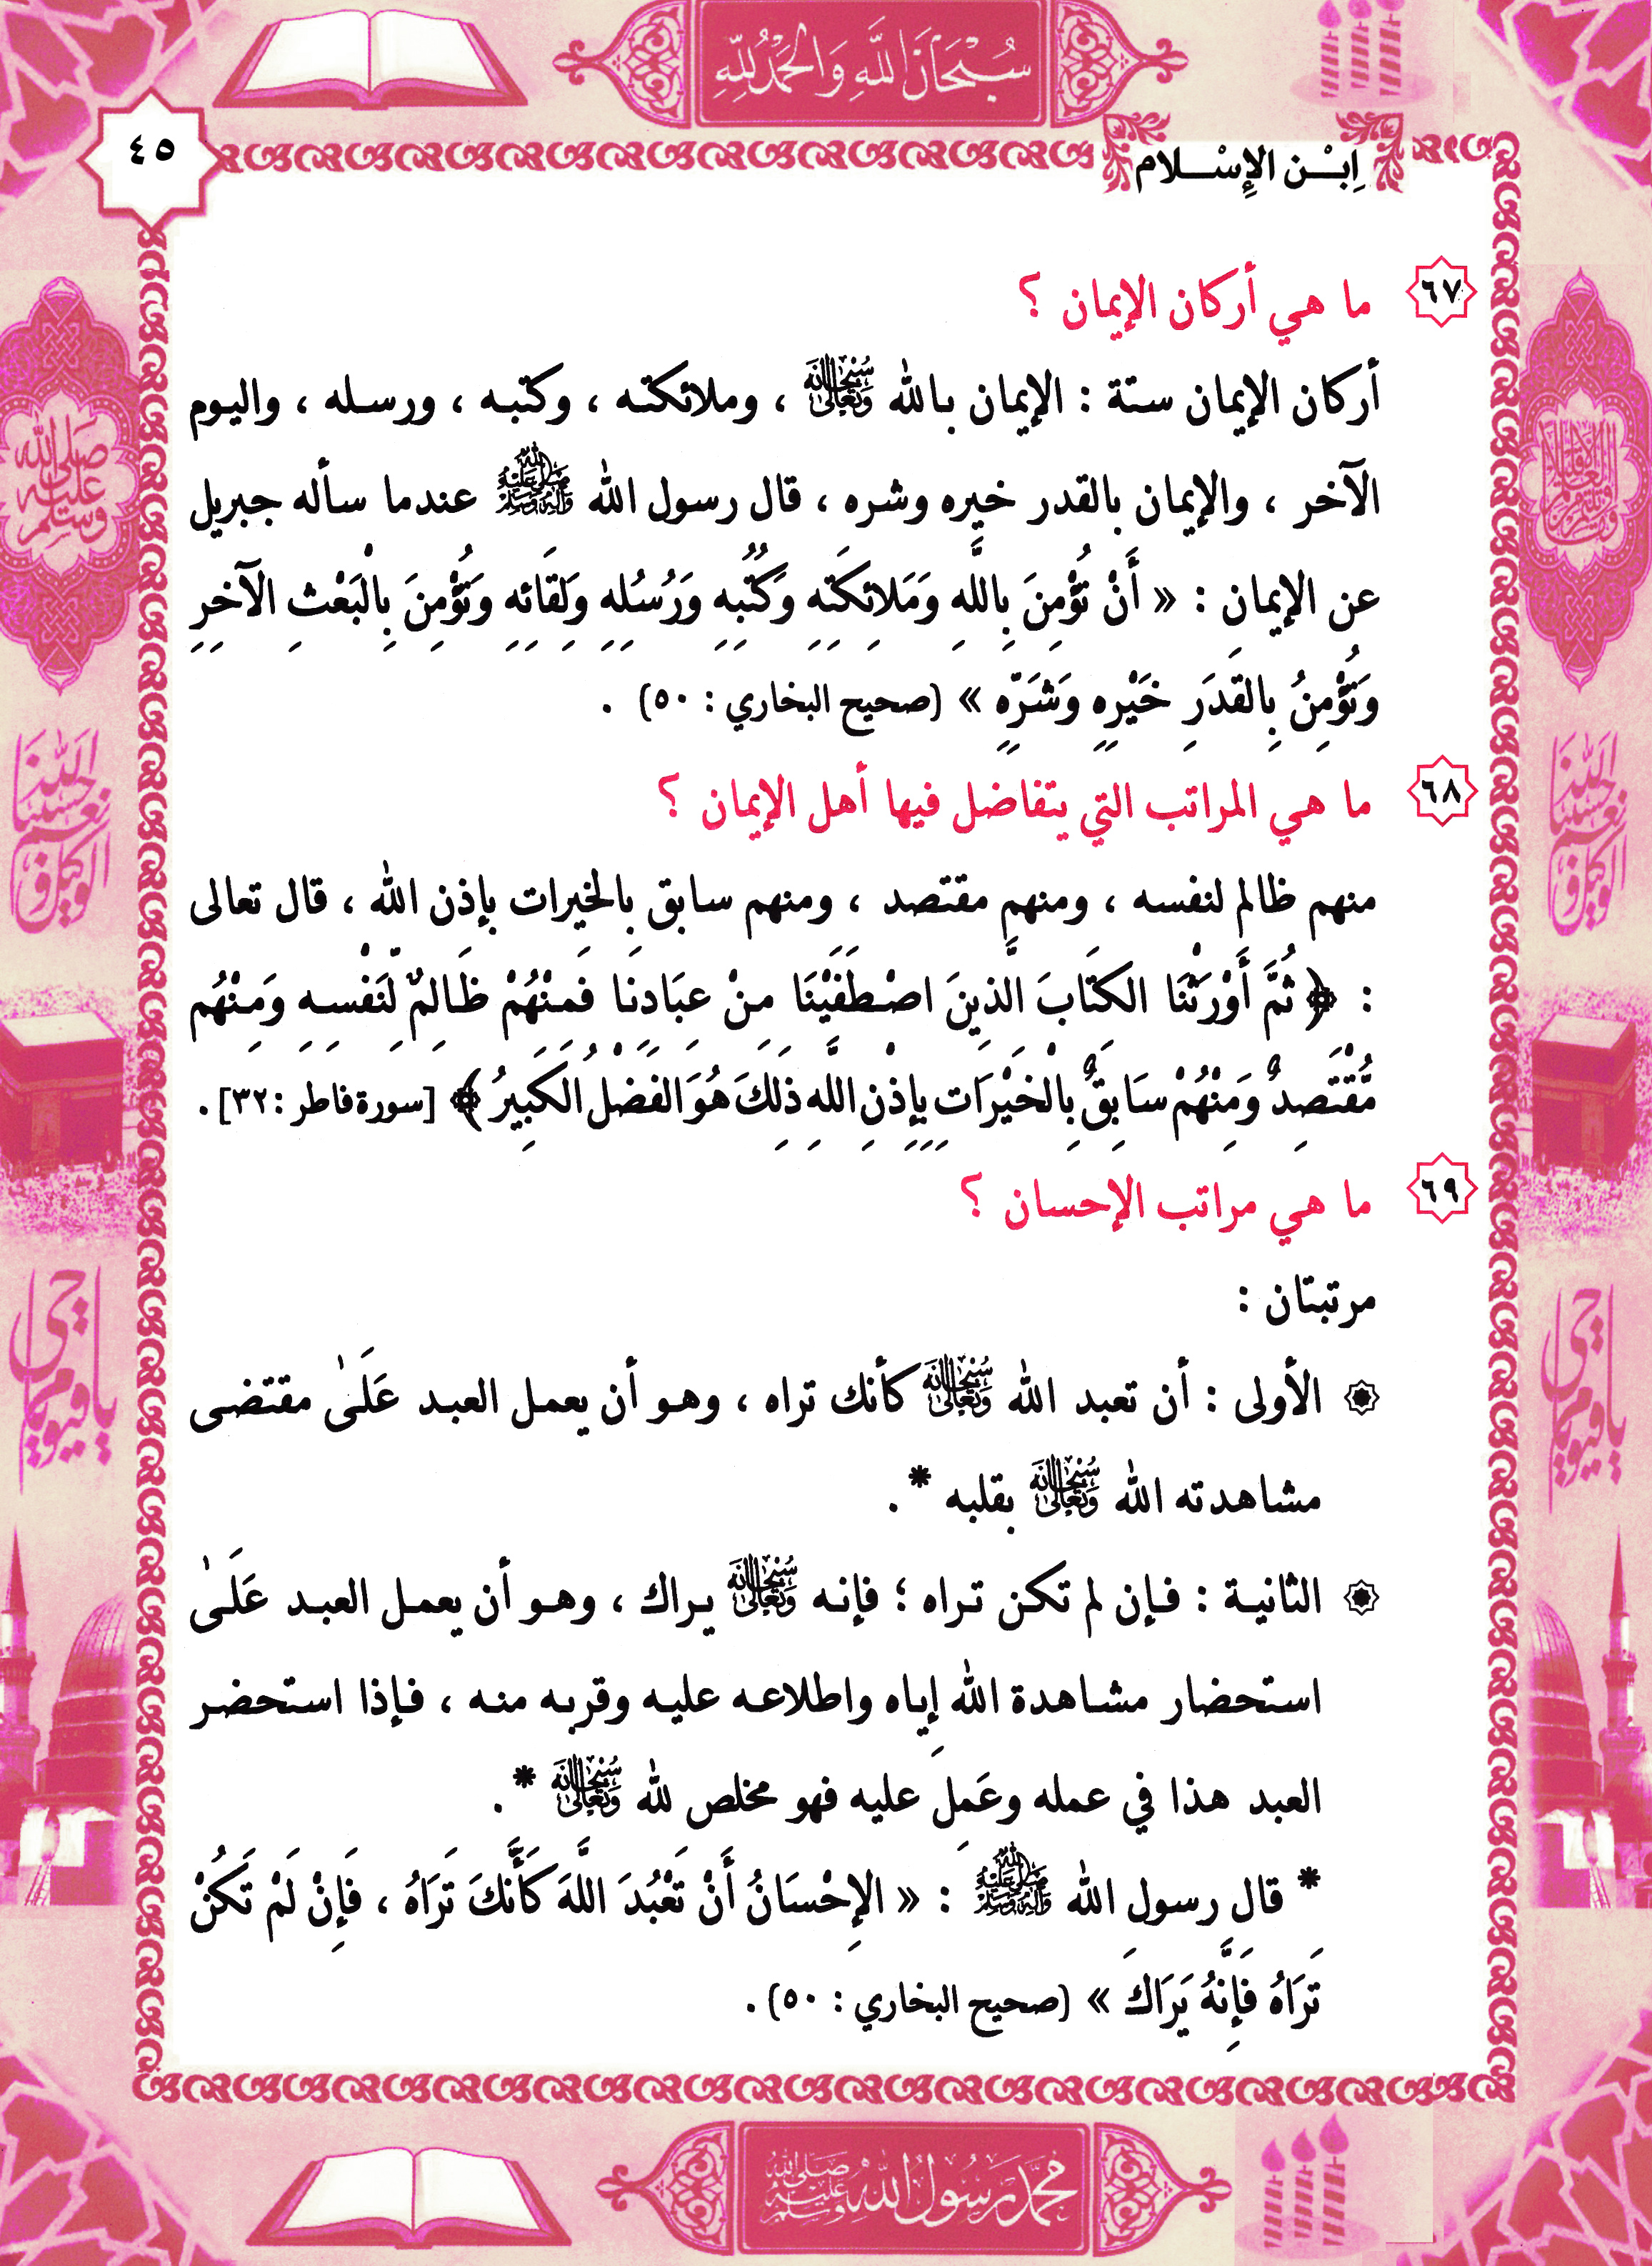 سُبْحَانَ اللَّهِ وَالْحَمْدُ لِلَّهِ
٤٥
اِبْـن الإِسْـلام
٦٧ ما هي أركان الإيمان ؟
أركان الإيمان ستة : الإيمان بالله سُبْحَانَهُ وَتَعَالَى ، وملائكته ، وكتبه ، ورسله ، واليوم
الآخر ، والإيمان بالقدر خيره وشره ، قال رسول الله ﷺ عندما سأله جبريل
عن الإيمان : « أَنْ تُؤْمِنَ بِاللَّهِ وَمَلَائِكَتِهِ وَكُتُبِهِ وَرُسُلِهِ وَلِقَائِهِ وَتُؤْمِنَ بِالْبَعْثِ الآخِرِ
وَتُؤْمِنُ بِالقَدَرِ خَيْرِهِ وَشَرِّهِ » (صحيح البخاري : ٥٠) .
٦٨ ما هي المراتب التي يتفاضل فيها أهل الإيمان ؟
منهم ظالم لنفسه ، ومنهم مقتصد ، ومنهم سابق بالخيرات بإذن الله ، قال تعالى
: ﴿ ثُمَّ أَوْرَثْنَا الكِتَابَ الَّذِينَ اصْطَفَيْنَا مِنْ عِبَادِنَا فَمِنْهُمْ ظَالِمٌ لِّنَفْسِهِ وَمِنْهُم
مُّقْتَصِدٌ وَمِنْهُمْ سَابِقٌ بِالْخَيْرَاتِ بِإِذْنِ اللَّهِ ذَلِكَ هُوَ الفَضْلُ الكَبِيرُ ﴾ [سورة فاطر : ٣٢] .
٦٩ ما هي مراتب الإحسان ؟
مرتبتان :
الأولى : أن تعبد الله سُبْحَانَهُ وَتَعَالَى كأنك تراه ، وهو أن يعمل العبد عَلَىٰ مقتضى
مشاهدته الله سُبْحَانَهُ وَتَعَالَى بقلبه * .
الثانية : فإن لم تكن تراه ؛ فإنه سُبْحَانَهُ وَتَعَالَى يراك ، وهو أن يعمل العبد عَلَىٰ
استحضار مشاهدة الله إِياه واطلاعه عليه وقربه منه ، فإذا استحضر
العبد هذا في عمله وعَمِل عليه فهو مخلص لله سُبْحَانَهُ وَتَعَالَى * .
* قال رسول الله ﷺ : « الإِحْسَانُ أَنْ تَعْبُدَ اللَّهَ كَأَنَّكَ تَرَاهُ ، فَإِنْ لَمْ تَكُنْ
تَرَاهُ فَإِنَّهُ يَرَاكَ » (صحيح البخاري : ٥٠) .
صلى الله عليه وسلم
حسبنا الله ونعم الوكيل
حسبنا الله ونعم الوكيل
يا حي يا قيوم
يا حي يا قيوم
محمد رَسُولُ اللَّهِ صلى الله عليه وسلم